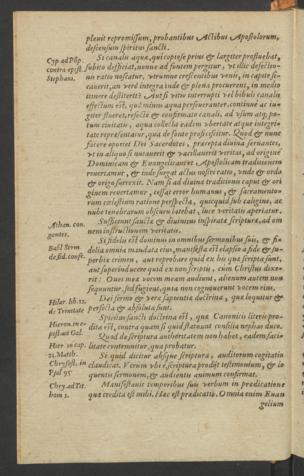 pleuit repromissum, probantibus Actibus Apostolorum,
descensum spiritus sancti.
Cyp ad Põp.
contra epist.
Stephani.
Si canalis aquã, quæ copiose prius & largiter profluebat,
subito deficiat, nonne ad fontem pergitur, vt illic defectio-
nis ratio noscatur, vtrumne crescentibus venis, in capite si-
cauerit, an verò integra inde & plena procurrens, in medio
itinere destiterit? Aut si vitio interrupti vel bibuli canalis
effectum est, quò minus aqua perseueranter, continuè ac iu-
giter flueret, refecto & confirmato canali, ad vsum atq; po-
tum ciuitatis, aqua collecta eadem vbertate atque integri-
tate repræsentatur, qua de fonte proficiscitur. Quod & nunc
facere oportet Dei Sacerdotes, præcepta diuina seruantes,
vt in aliquo si nutauerit & vacillauerit veritas, ad originẽ
Dominicam & Euangelicam & Apostolicam traditionem
reuertamur, & inde surgat actus nostri ratio, vnde & ordo
& origo surrexit. Nam si ad diuinæ traditionis caput & ori
ginem reuertamur, cessat error humanus, & sacramentо-
rum cœlestium ratione perspecta, quicquid sub caligine, ac
nube tenebrarum obscurũ latebat, luce veritatis aperiatur.
Athan. con.
gentes.
Sufficiunt sanctæ & diuinitus inspiratæ scripturæ, ad om
nem instructionem veritatis.
Basil serm
de fid. conf.
Si fidelis est dominus in omnibus sermonibus suis, & fi-
delia omnia mandata eius, manifesta est elapsio a fide & su-
perbiæ crimen, aut reprobare quid ex his quæ scripta sunt,
aut superinducere quid ex non scriptis, cum Christus dixe-
rit: Oues meæ vocem meam audiunt, alienum autem non
sequuntur, sed fugient, quia non cognouerunt vocem eius.
Hilar. lib. 12.
de Trinitate
Dei sermo & vera sapientia doctrina, quæ loquitur &
perfecta & absoluta sunt.
Spiritus sancti doctrina est, quæ Canonicis literis pro-
dita est, contra quam si quid statuant concilia nephas duco.
Hier in cap.
23. Matth.
Quod de scriptura authoritatem non habet, eadem faci-
litate contemnitur, qua probatur.
Chrysost. in
Psal 95
Si quid dicitur absque scriptura, auditorum cogitatio
claudicat. Verùm vbi è scriptura prodijt testimonium, & lo
quentis sermonem, & audientis animum confirmat.
Chry. ad Tit
hom 1.
Manifestauit temporibus suis verbum in prædicatione
quæ credita est mihi. Hæc est prædicatio. Omnia enim Euan
gelium